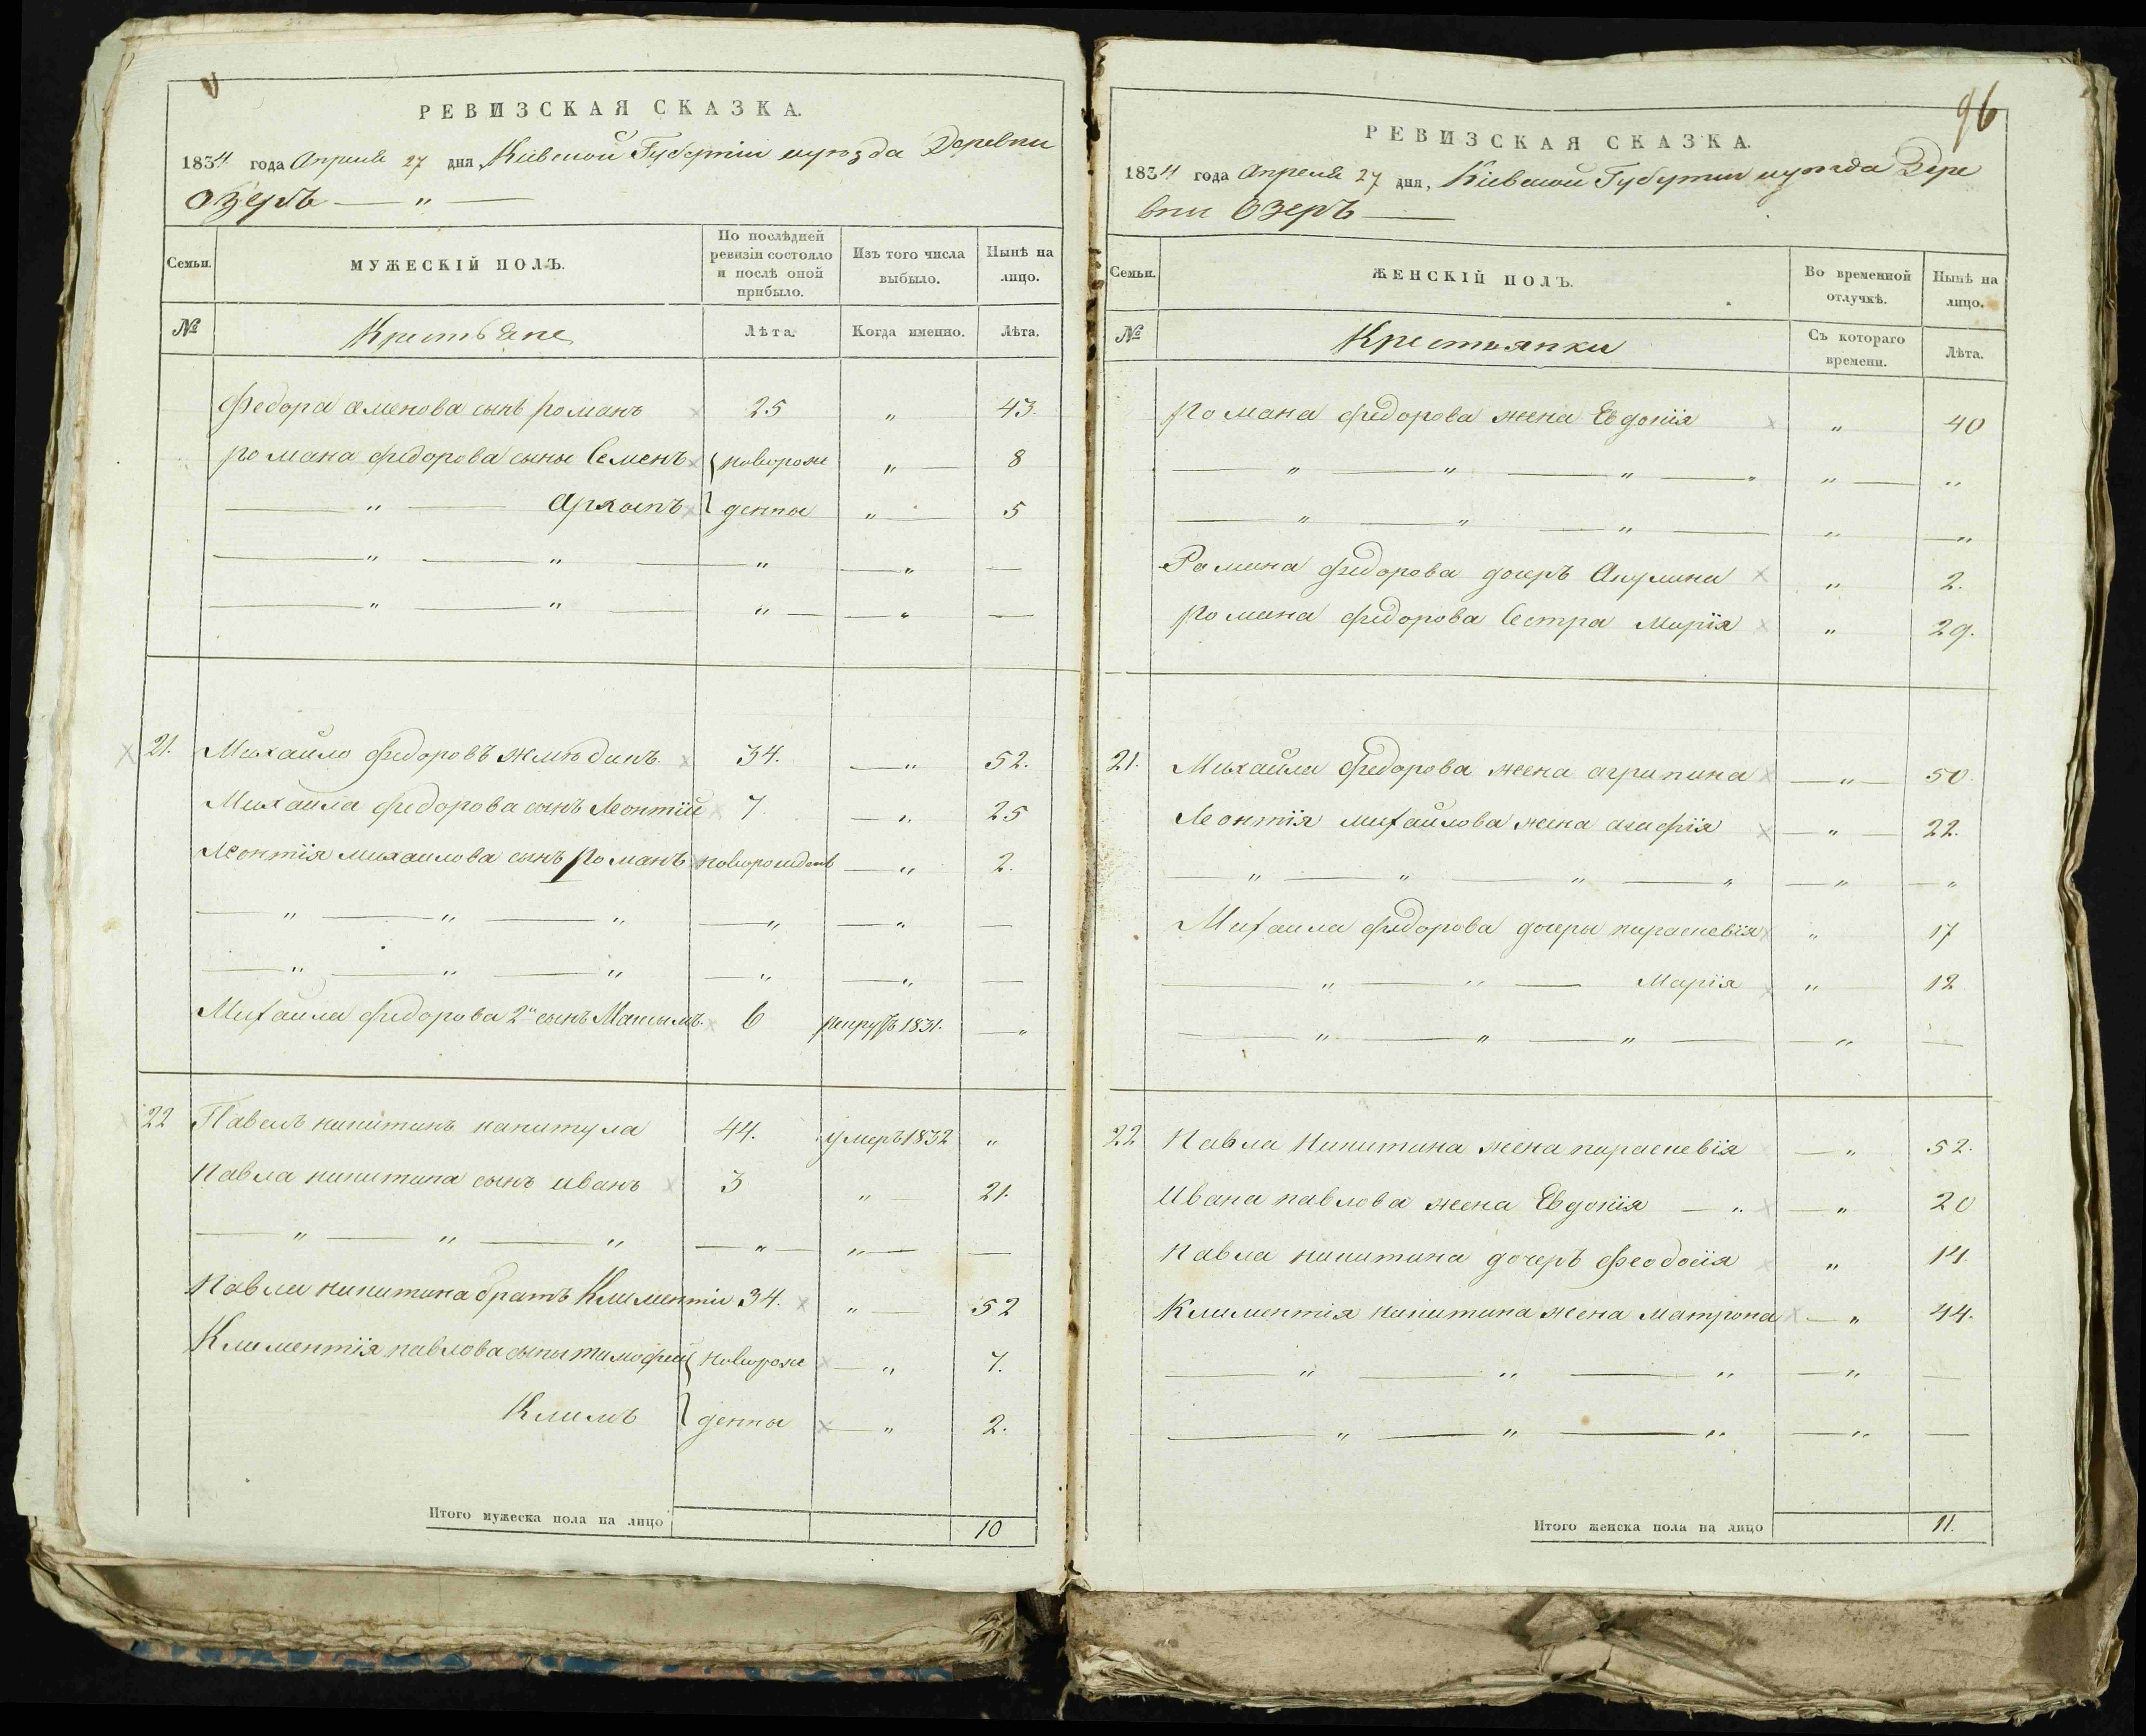 РЕВИЗСКАЯ СКАЗКА.
1834 года Апреля 27 дня, Кіевской Губерніи и уезда Деревни
Озеръ — „ —
Семьи. МУЖЕСКІЙ ПОЛЪ. По послѣдней ревизіи состояло и послѣ оной прибыло. Изъ того числа выбыло. Нынѣ на лицо.
№ Крестьяне Лѣта. Когда именно. Лѣта.
Федора семенова сынъ романъ 25 „ 43.
романа федорова сыны Семенъ новорож „ — 8
— „ — Архипъ денны „ — 5
— „ — „ — „ — „ —
— „ — „ — „ — „ —
21. Михайло федоровъ 34. — „ 52.
Михаила федорова сынъ Леонтій 7. — „ 25
Леонтія михаилова сынъ романъ новорожденъ — „ 2.
— „ — „ — „ — „ — „ —
— „ — „ — „ — „ — „ —
Михаила федорова 2й сынъ Максымъ. 6 рекрутъ 1831. — „
22 Павелъ никитинъ капитула 44. умеръ 1832 „
павла никитина сынъ иванъ 3 „ — 21.
— „ — „ — „ — „ — „ — —
павла никитина братъ Климентіи 34. „ — 52
Климентія павлова сыны тимофей новорож — „ 7.
Климъ денны — „ 2.
Итого мужеска пола на лицо 10
96
РЕВИЗСКАЯ СКАЗКА.
1834 года Апреля 27 дня, Кіевской Губерніи и уезда Дере
вни Озеръ —
Семьи. ЖЕНСКІЙ ПОЛЪ. Во временной отлучкѣ. Нынѣ на лицо.
№ Крестьянки Съ котораго времени. Лѣта.
Романа федорова жена Евдокія „ 40
— „ — „ — „ — „ „ — „
— „ — „ — „ — „ — „
Романа федорова дочеръ Акулина „ 2.
романа федорова Сестра Марія „ 29.
21. Михайла Федорова жена агрипина — „ — 50.
Леонтія михайлова жена агафія — „ — 22.
— „ — „ — „ — „ — „ — — „
Михаила федорова дочеры параскевія „ 17
— „ — „ — Марія „ 12
— „ — „ — „ — — „ —
22 павла Никитина жена параскевія — „ 52.
Ивана павлова жена Евдокія — „ — „ 20
павла никитина дочеръ феодосія „ 14.
Климентія никитина жена матрона — „ 44.
— „ — „ — „ — „ —
— „ — „ — „ — „ —
Итого женска пола на лицо 11.